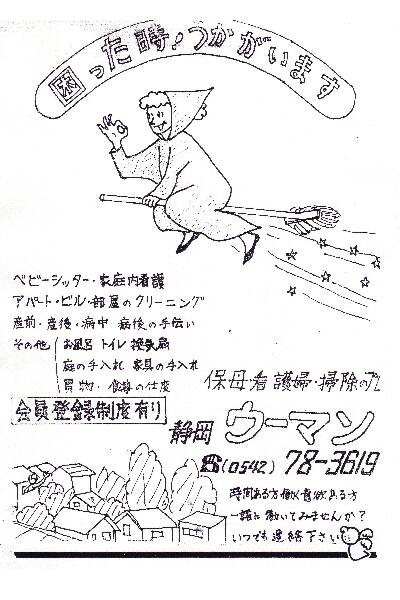 困った時!つかがいます
ベビーシッター・家庭内看護
アパート・ビル・部屋のクリーニング
産前・産後・病中 病後の手伝い
その他 お風呂 トイレ 換気扇
庭の手入れ 家具の手入れ
買物・食事の仕度
保母・看護婦・掃除のプロ
会員登録制度有り
静岡 ウーマン
☎(0542) 78-3619
時間ある方働く意欲ある方
一緒に働いてみませんか?
いつでも連絡下さい